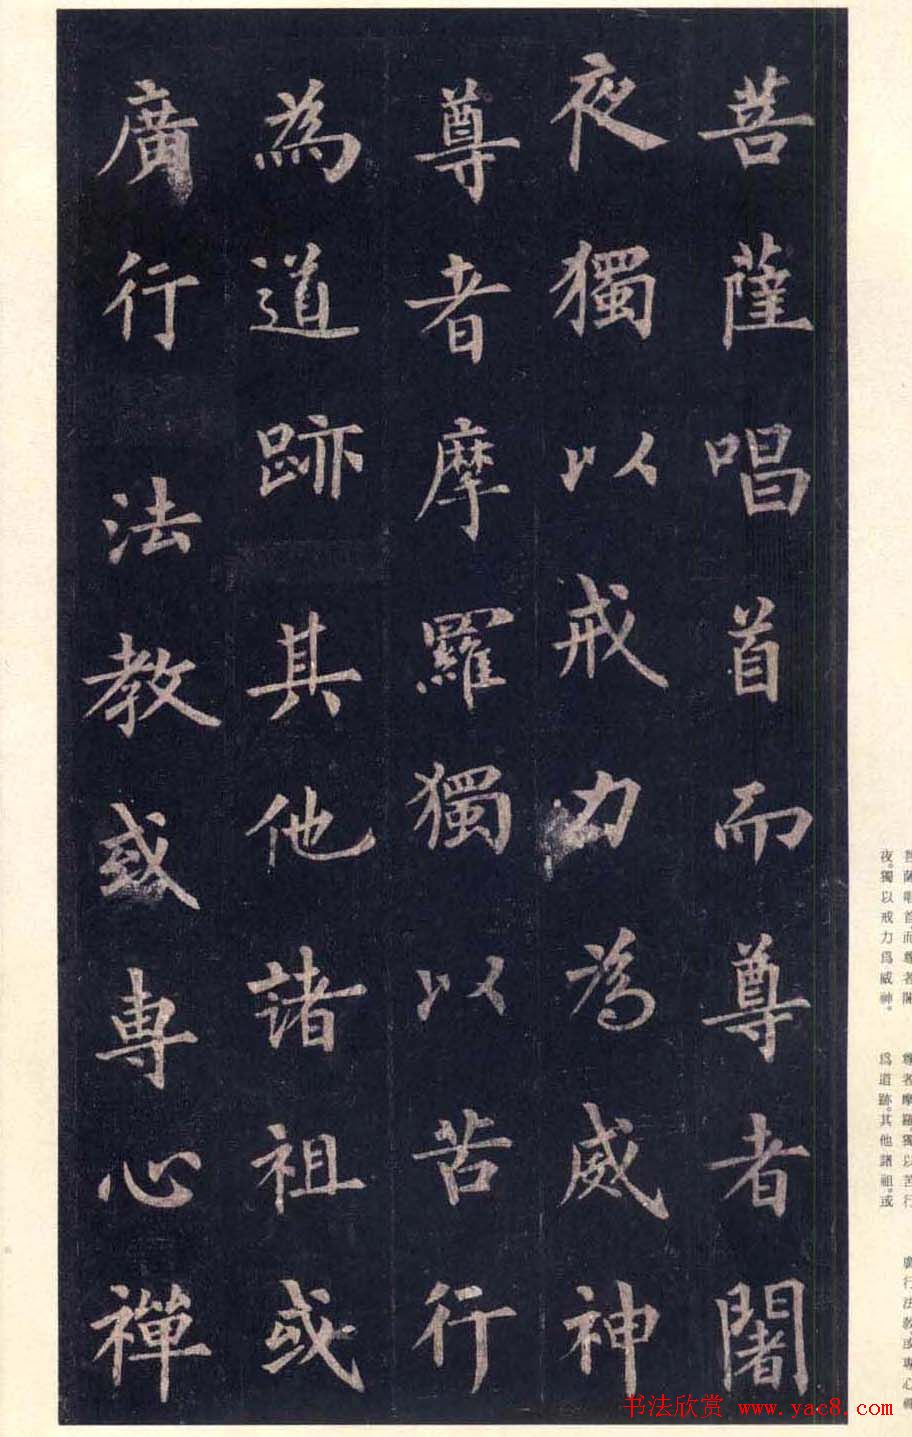 菩薩唱首而尊者闍
夜獨以戒力為威神
尊者摩羅獨以苦行
為道跡其他諸祖或
廣行法教或專心禪
菩薩唱首而尊者闍
夜。獨以戒力爲威神。
尊者摩羅。獨以苦行
爲道跡。其他諸祖。或
廣行法教或專心禪
书法欣赏 www.yac8.com